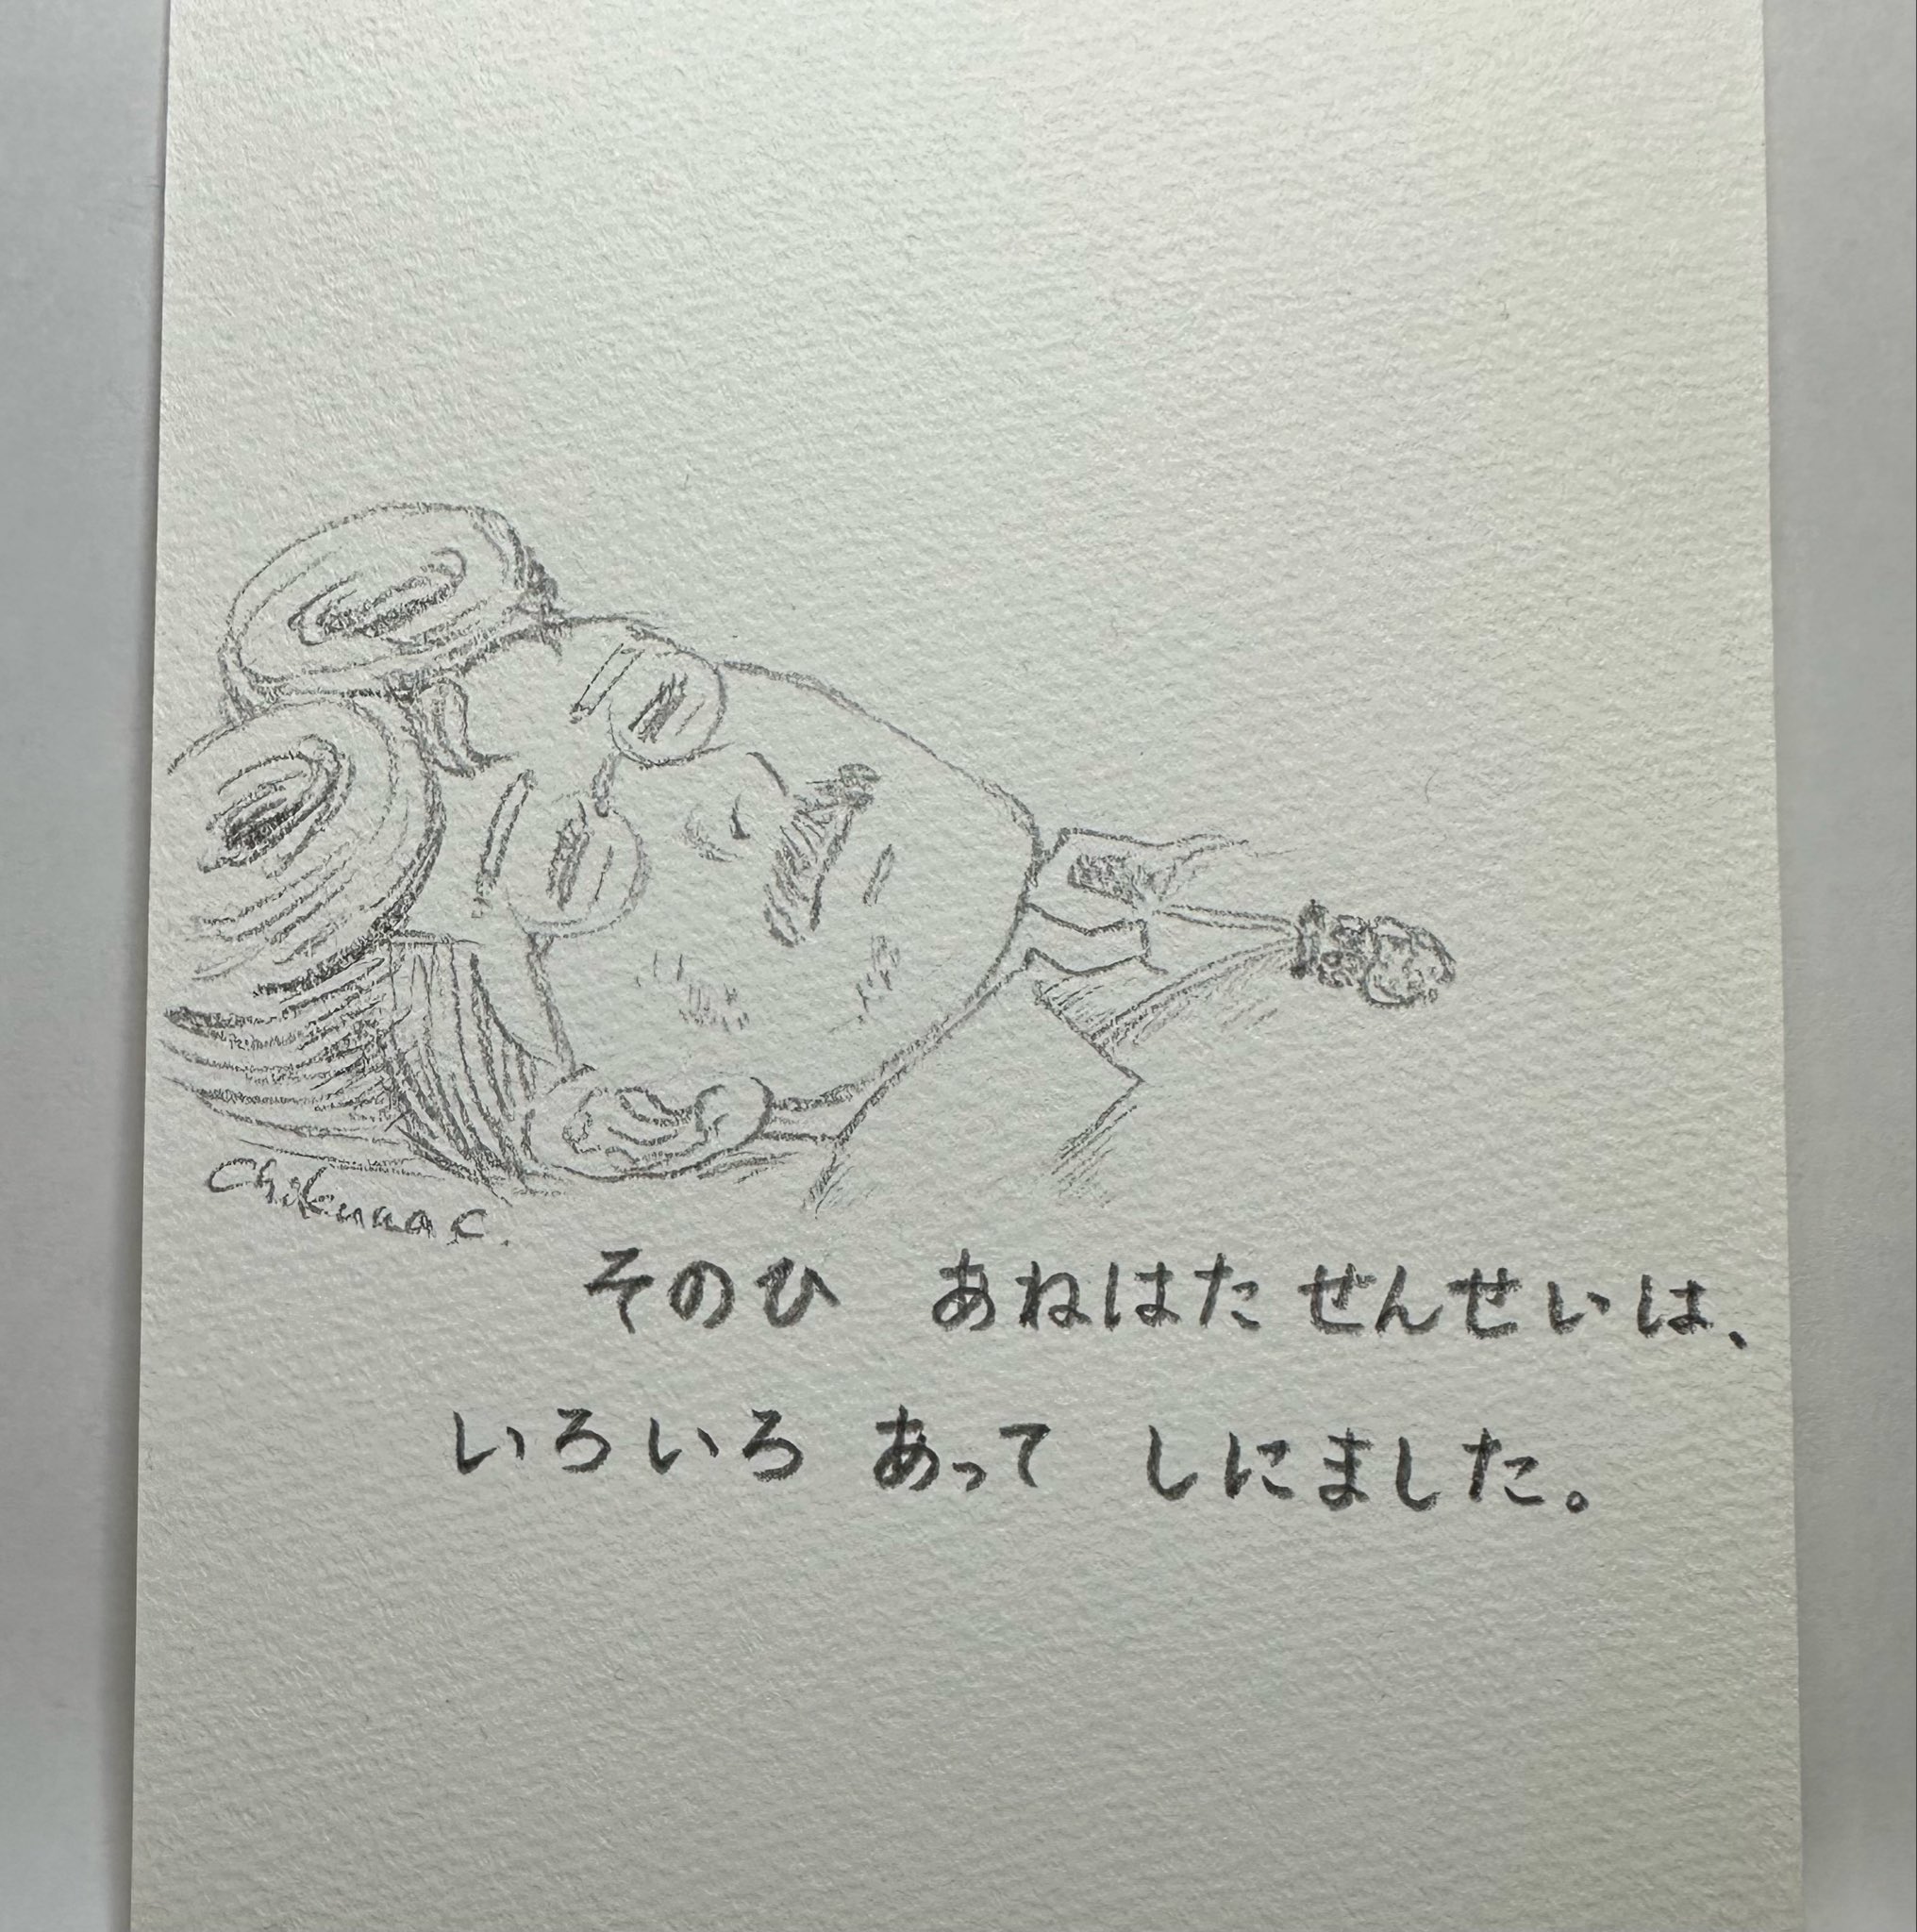 Chikuma C.
そのひ あねはた ぜんせいは、
いろいろ あって しにました。